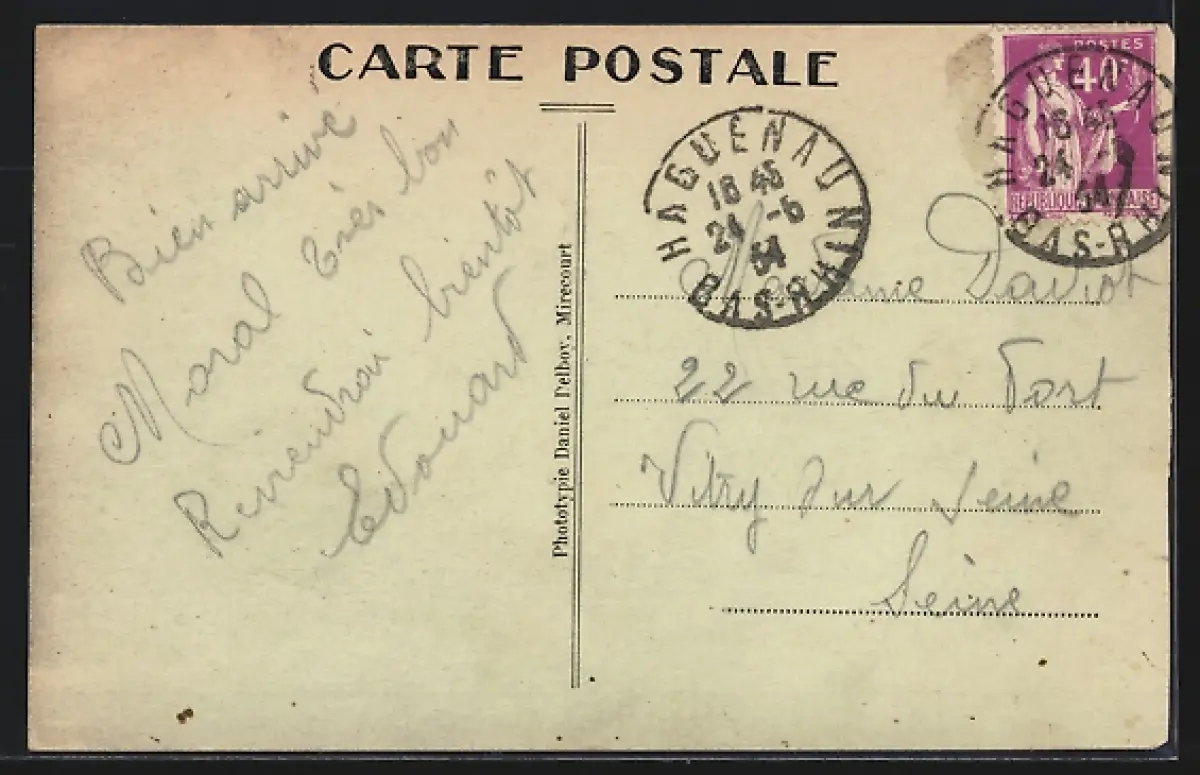 CARTE POSTALE
Bien arrivé
Moral très bon
Reviendrai bientôt
Edouard
Phototypie Daniel Delboy, Mirecourt
POSTES
40
REPUBLIQUE FRANÇAISE
HAGUENAU
16 45
24 -5
34
BAS-RHIN
HAGUENAU
16 45
24
34
BAS-RHIN
Madame Daviot
22 rue du Port
Vitry sur Seine
Seine